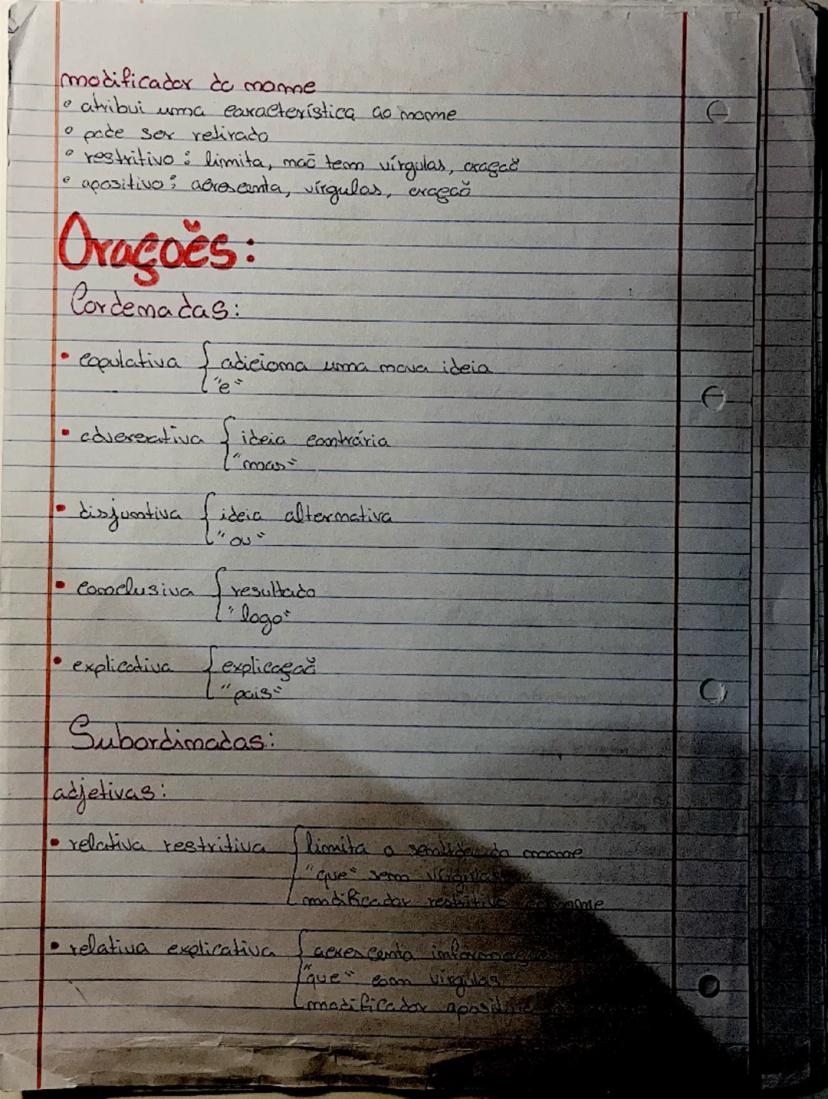 modificador do nome
° atribui uma característica ao nome
° pode ser retirado
° restritivo : limita, não tem vírgulas, oração
° apositivo : acrescenta, vírgulas, oração
Orações:
Cordenadas:
• copulativa { adiciona uma nova ideia
"e"
• adversativa { ideia contrária
"mas"
• disjuntiva { ideia alternativa
"ou"
• conclusiva { resultado
"logo"
• explicativa { explicação
"pois"
Subordinadas:
adjetivas:
• relativa restritiva { limita o sentido do nome
"que" sem vírgulas
modificador restritivo nome
• relativa explicativa { acrescenta informação
"que" com vírgulas
modificador apositivo